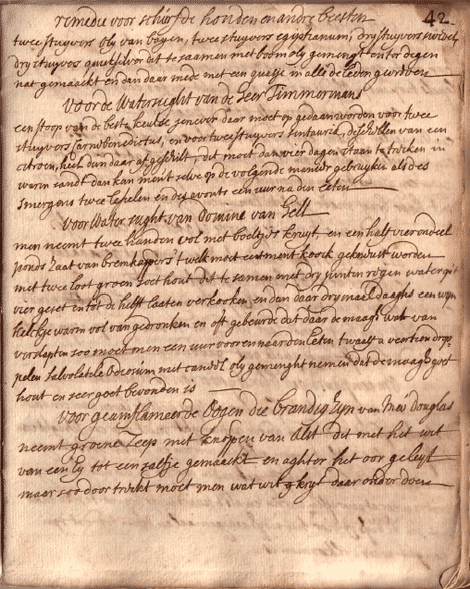 42
remedie voor schurfde honden en andre beesten
twee stuyvers oly van bayen, twee stuyvers egiptiacum, dry stuyvers swavel
dry stuyvers quicksilver dit te saamen met boom oly gemengt en ter degen
nat gemaakt en dan daar mede met een quasje in alle de leden gewreven
Voor de Watersught van de Heer Timmermans
een stoop van de beste keulse jenever daar moet op gedaan worden voor twee
stuyvers Carnobenedictus, en voor twee stuyvers sentaurie, de schillen van een
citroen, heel dun daar afgeschilt, dit moet dan vier dagen staan te trecken in
warm sandt dan kan ment selve op de volgende manier gebruyken als des
smorgens twee lepelen en des avonts een uur na den eeten
voor Water sught van Domine van Gell
men neemt twee handen vol met boeltjes kruyt en een half vierendeel
ponds zaat van brem twelk moet eerst moet koock gekneust worden
met twee loot groen soet hout dit te samen met dry pinten regen water opt
vier geset en tot de helft laaten verkooken en den daar dry maal daaghs een wyn
kelckje warm vol van gedronken en oft gebeurde dat daar de maagh wat van
verslapten soo moet men een uur voor en naar den Eeten twaelf a veertien drop
pelen salvolatile oleosum met candil oly gemenght nemen dat de maagh goet
hout en seer goet bevonden is
Voor geinflameerde Oogen die brandig zyn van Mev Douglas
neemt groene Zeep met knoppen van Alst dit met het wit
van een Ey tot een salfje gemaackt en aghter het oor geleyt
maar soo door trekt moet men wat wit kryt daar onder doen